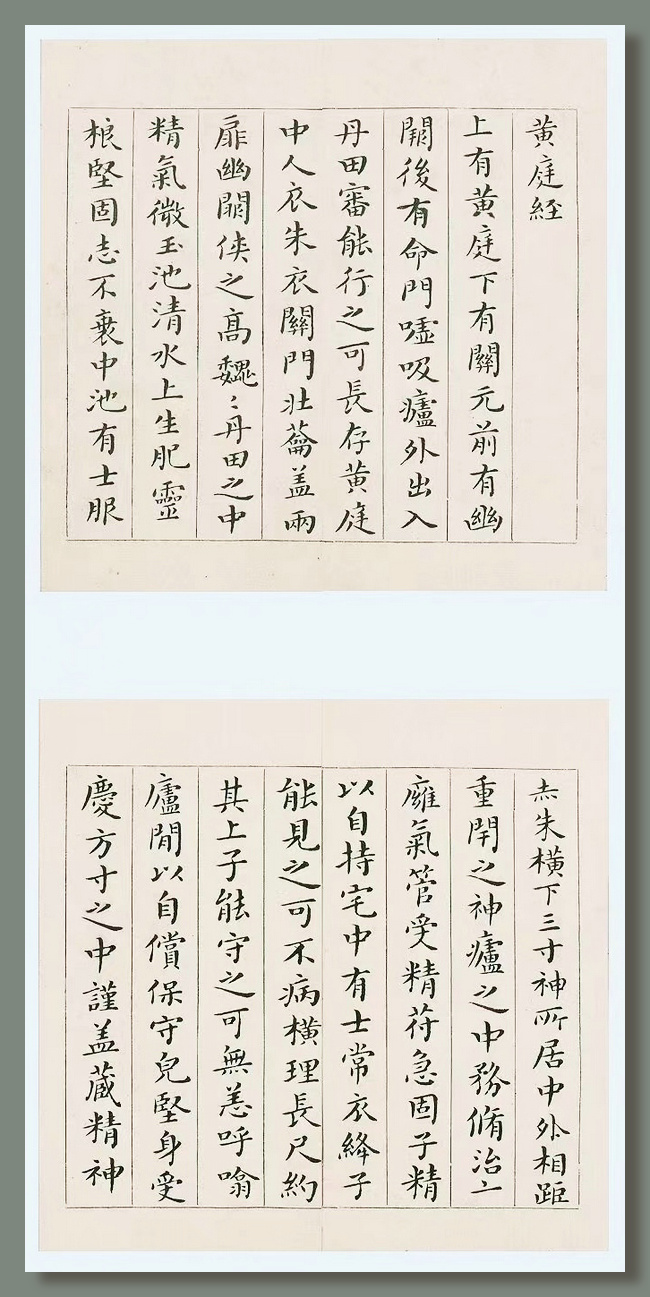 黄庭経
上有黄庭下有關元前有幽
闕後有命門噓吸廬外出入
丹田審能行之可長存黄庭
中人衣朱衣關門壯蘥盖兩
扉幽闕俠之髙巍〻丹田之中
精氣微玉池清水上生肥靈
根堅固志不衰中池有士服
赤朱橫下三寸神所居中外相距
重閇之神廬之中務脩治亠
廱氣管受精符急固子精
以自持宅中有士常衣絳子
能見之可不病橫理長尺約
其上子能守之可無恙呼噏
廬間以自償保守皃堅身受
慶方寸之中謹盖藏精神